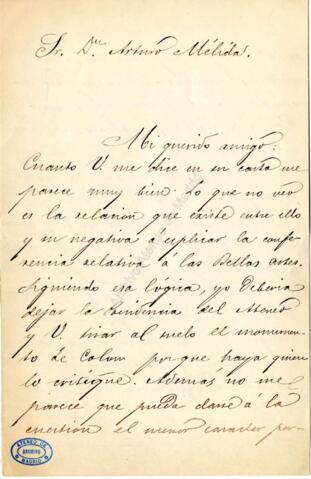 Sr. Dn. Arturo Mélida.
Mi querido amigo:
Cuanto V. me dice en su carta me
parece muy bien. Lo que no veo
es la relacion que existe entre ello
y su negativa á esplicar la confe-
rencia relativa á las Bellas Artes.
Siguiendo esa lógica, yo deberia
dejar la Presidencia del Ateneo
y V. tirar al suelo el monumen-
to de Colon porque haya quien
lo critique. Además no me
parece que pueda darse á la
cuestion el menor caracter por-
ATENEO DE
ARCHIVO
MADRID